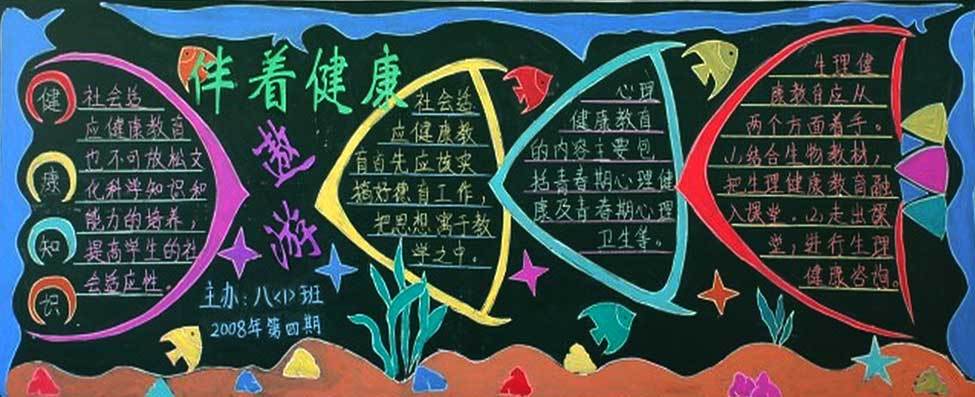 伴着健康
遨游
健
康
知
识
社会适
应健康教育
也不可放松文
化科学知识和
能力的培养，
提高学生的社
会适应性。
主办：八<1>班
2008年第四期
社会适
应健康教
育首先应该实
搞好德育工作，
把思想寓于教
学之中。
心理
健康教育
的内容主要包
括青春期心理健
康及青春期心理
卫生等。
生理健
康教育应从
两个方面着手。
(1)结合生物教材，
把生理健康教育融
入课堂。(2)走出课
堂，进行生理
健康咨询。